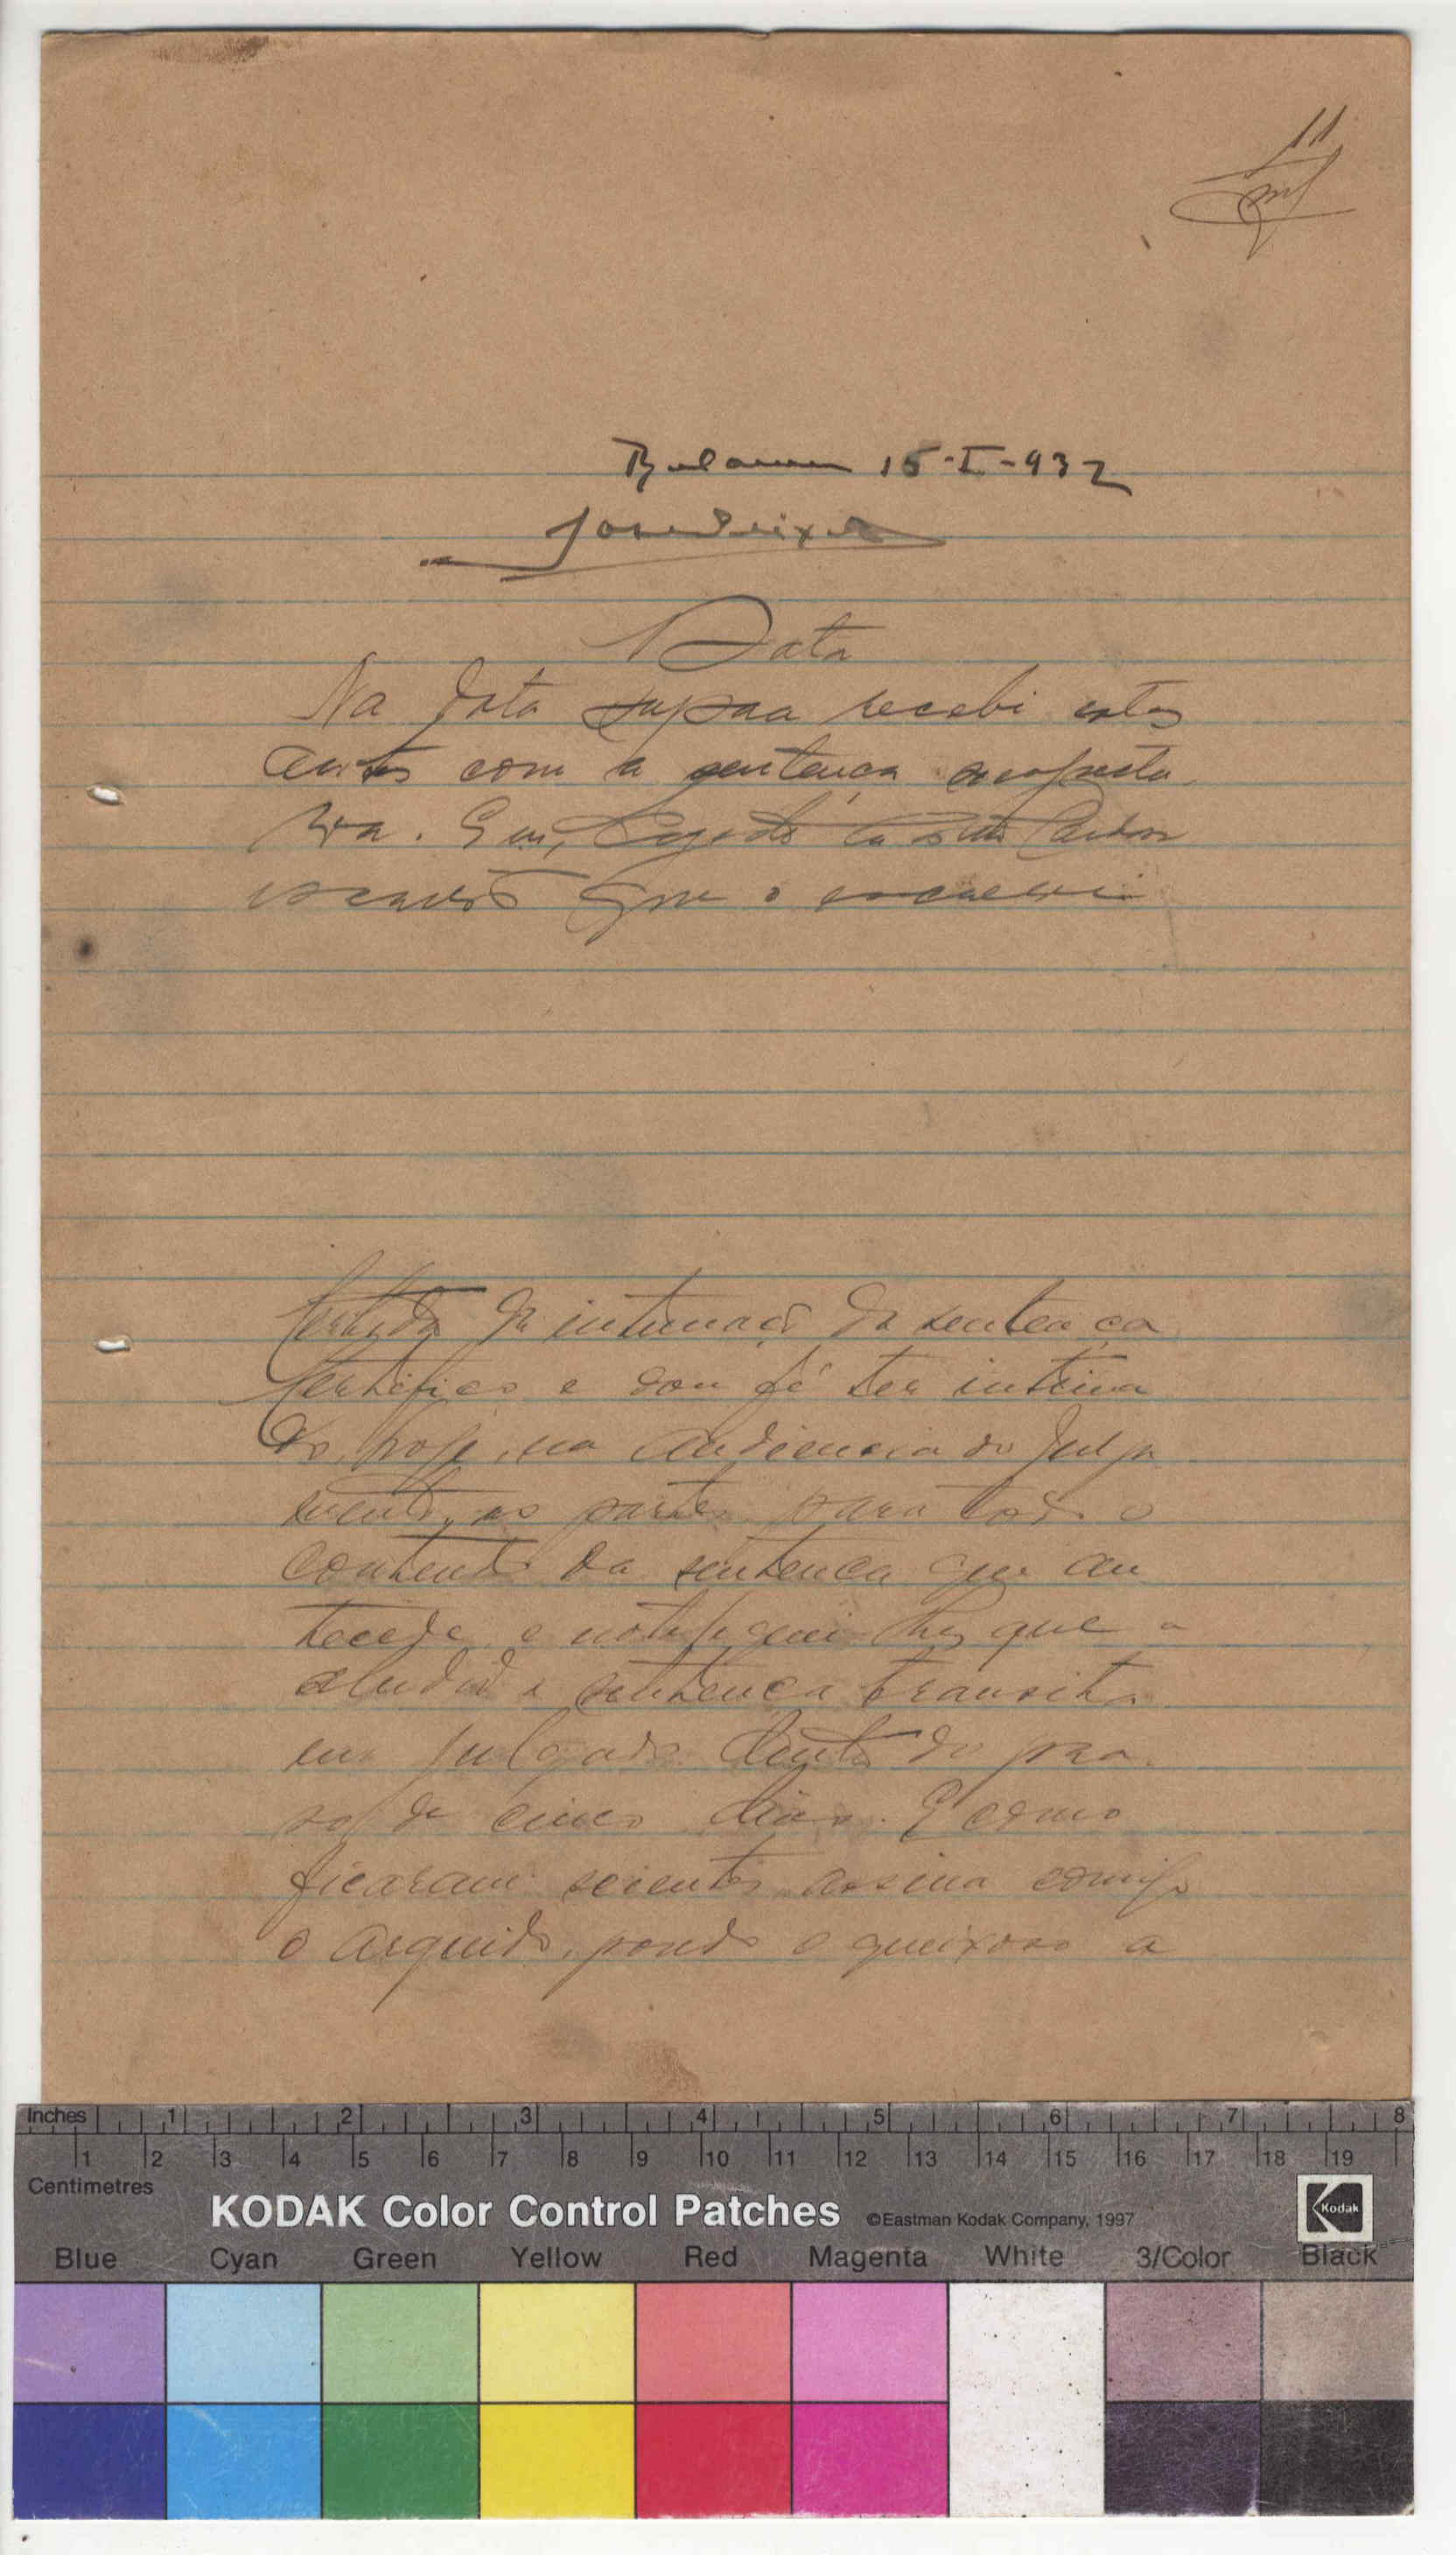 11
Bolama 15-I-932
Data
Na data supra recebi estes
autos com a sentença
Eu,
escrivão que o escrevi
Certidão de intimação da sentença
Certifico e dou fé ter intima
do hoje, na audiencia do julga
mento, as partes para todo o
conteudo da sentença que an
tecede e notifiquei-lhes que a
aludida sentença transita
em julgado dentro do pra
so de cinco dias. E como
ficaram scientes assina comigo
o arguido, pondo o queixoso a
Inches 1 2 3 4 5 6 7 8
1 2 3 4 5 6 7 8 9 10 11 12 13 14 15 16 17 18 19
Centimetres
KODAK Color Control Patches ©Eastman Kodak Company, 1997 Kodak
Blue Cyan Green Yellow Red Magenta White 3/Color Black